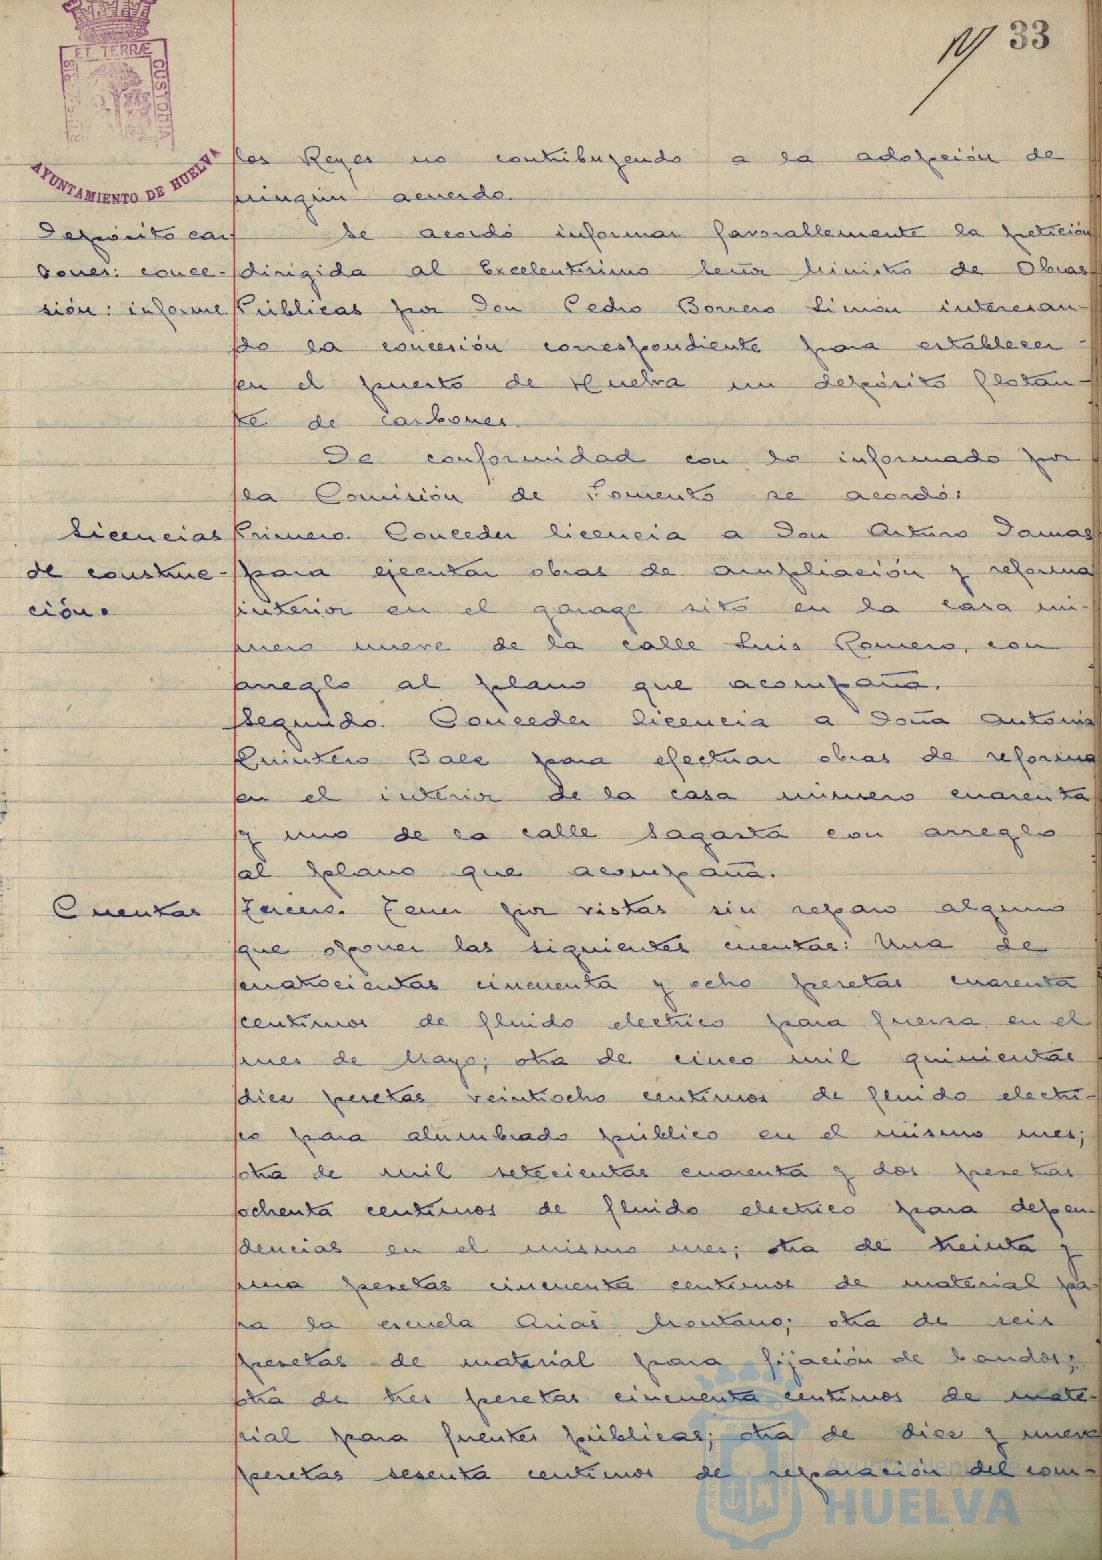 33
ET TERRÆ
CUSTODIA
AYUNTAMIENTO DE HUELVA
los Reyes no contribuyendo a la adopción de
ningun acuerdo.
Depósito car
bones: conce-
sión: informe
Se acordó informar favorablemente la petición
dirigida al Excelentisimo Señor Ministro de Obras
Públicas por Don Pedro Borrero Limón interesan-
do la concesión correspondiente para establecer
en el puerto de Huelva un depósito flotan-
te de carbones.
De conformidad con lo informado por
la Comisión de Fomento se acordó:
Licencias
de construc-
ción.
Primero. Conceder licencia a Don Arturo Damas
para ejecutar obras de ampliación y reforma
interior en el garage sito en la casa nú-
mero nueve de la calle Luis Romero, con
arreglo al plano que acompaña.
Segundo. Conceder licencia a Doña Antonia
Quintero Baez para efectuar obras de reforma
en el interior de la casa número cuarenta
y uno de la calle Sagasta con arreglo
al plano que acompaña.
Cuentas
Tercero. Tener por vistas sin reparo alguno
que oponer las siguientes cuentas: Una de
cuatrocientas cincuenta y ocho pesetas cuarenta
centimos de fluido electrico para fuerza en el
mes de Mayo; otra de cinco mil quinientas
diez pesetas veintiocho centimos de fluido electri-
co para alumbrado público en el mismo mes;
otra de mil setecientas cuarenta y dos pesetas
ochenta centimos de fluido electrico para depen-
dencias en el mismo mes; otra de treinta y
una pesetas cincuenta centimos de material pa-
ra la escuela Arias Montano; otra de seis
pesetas de material para fijación de bandos;
otra de tres pesetas cincuenta centimos de mate-
rial para fuentes públicas; otra de diez y nueve
pesetas sesenta centimos de reparación del com-
Ayuntamiento de
HUELVA